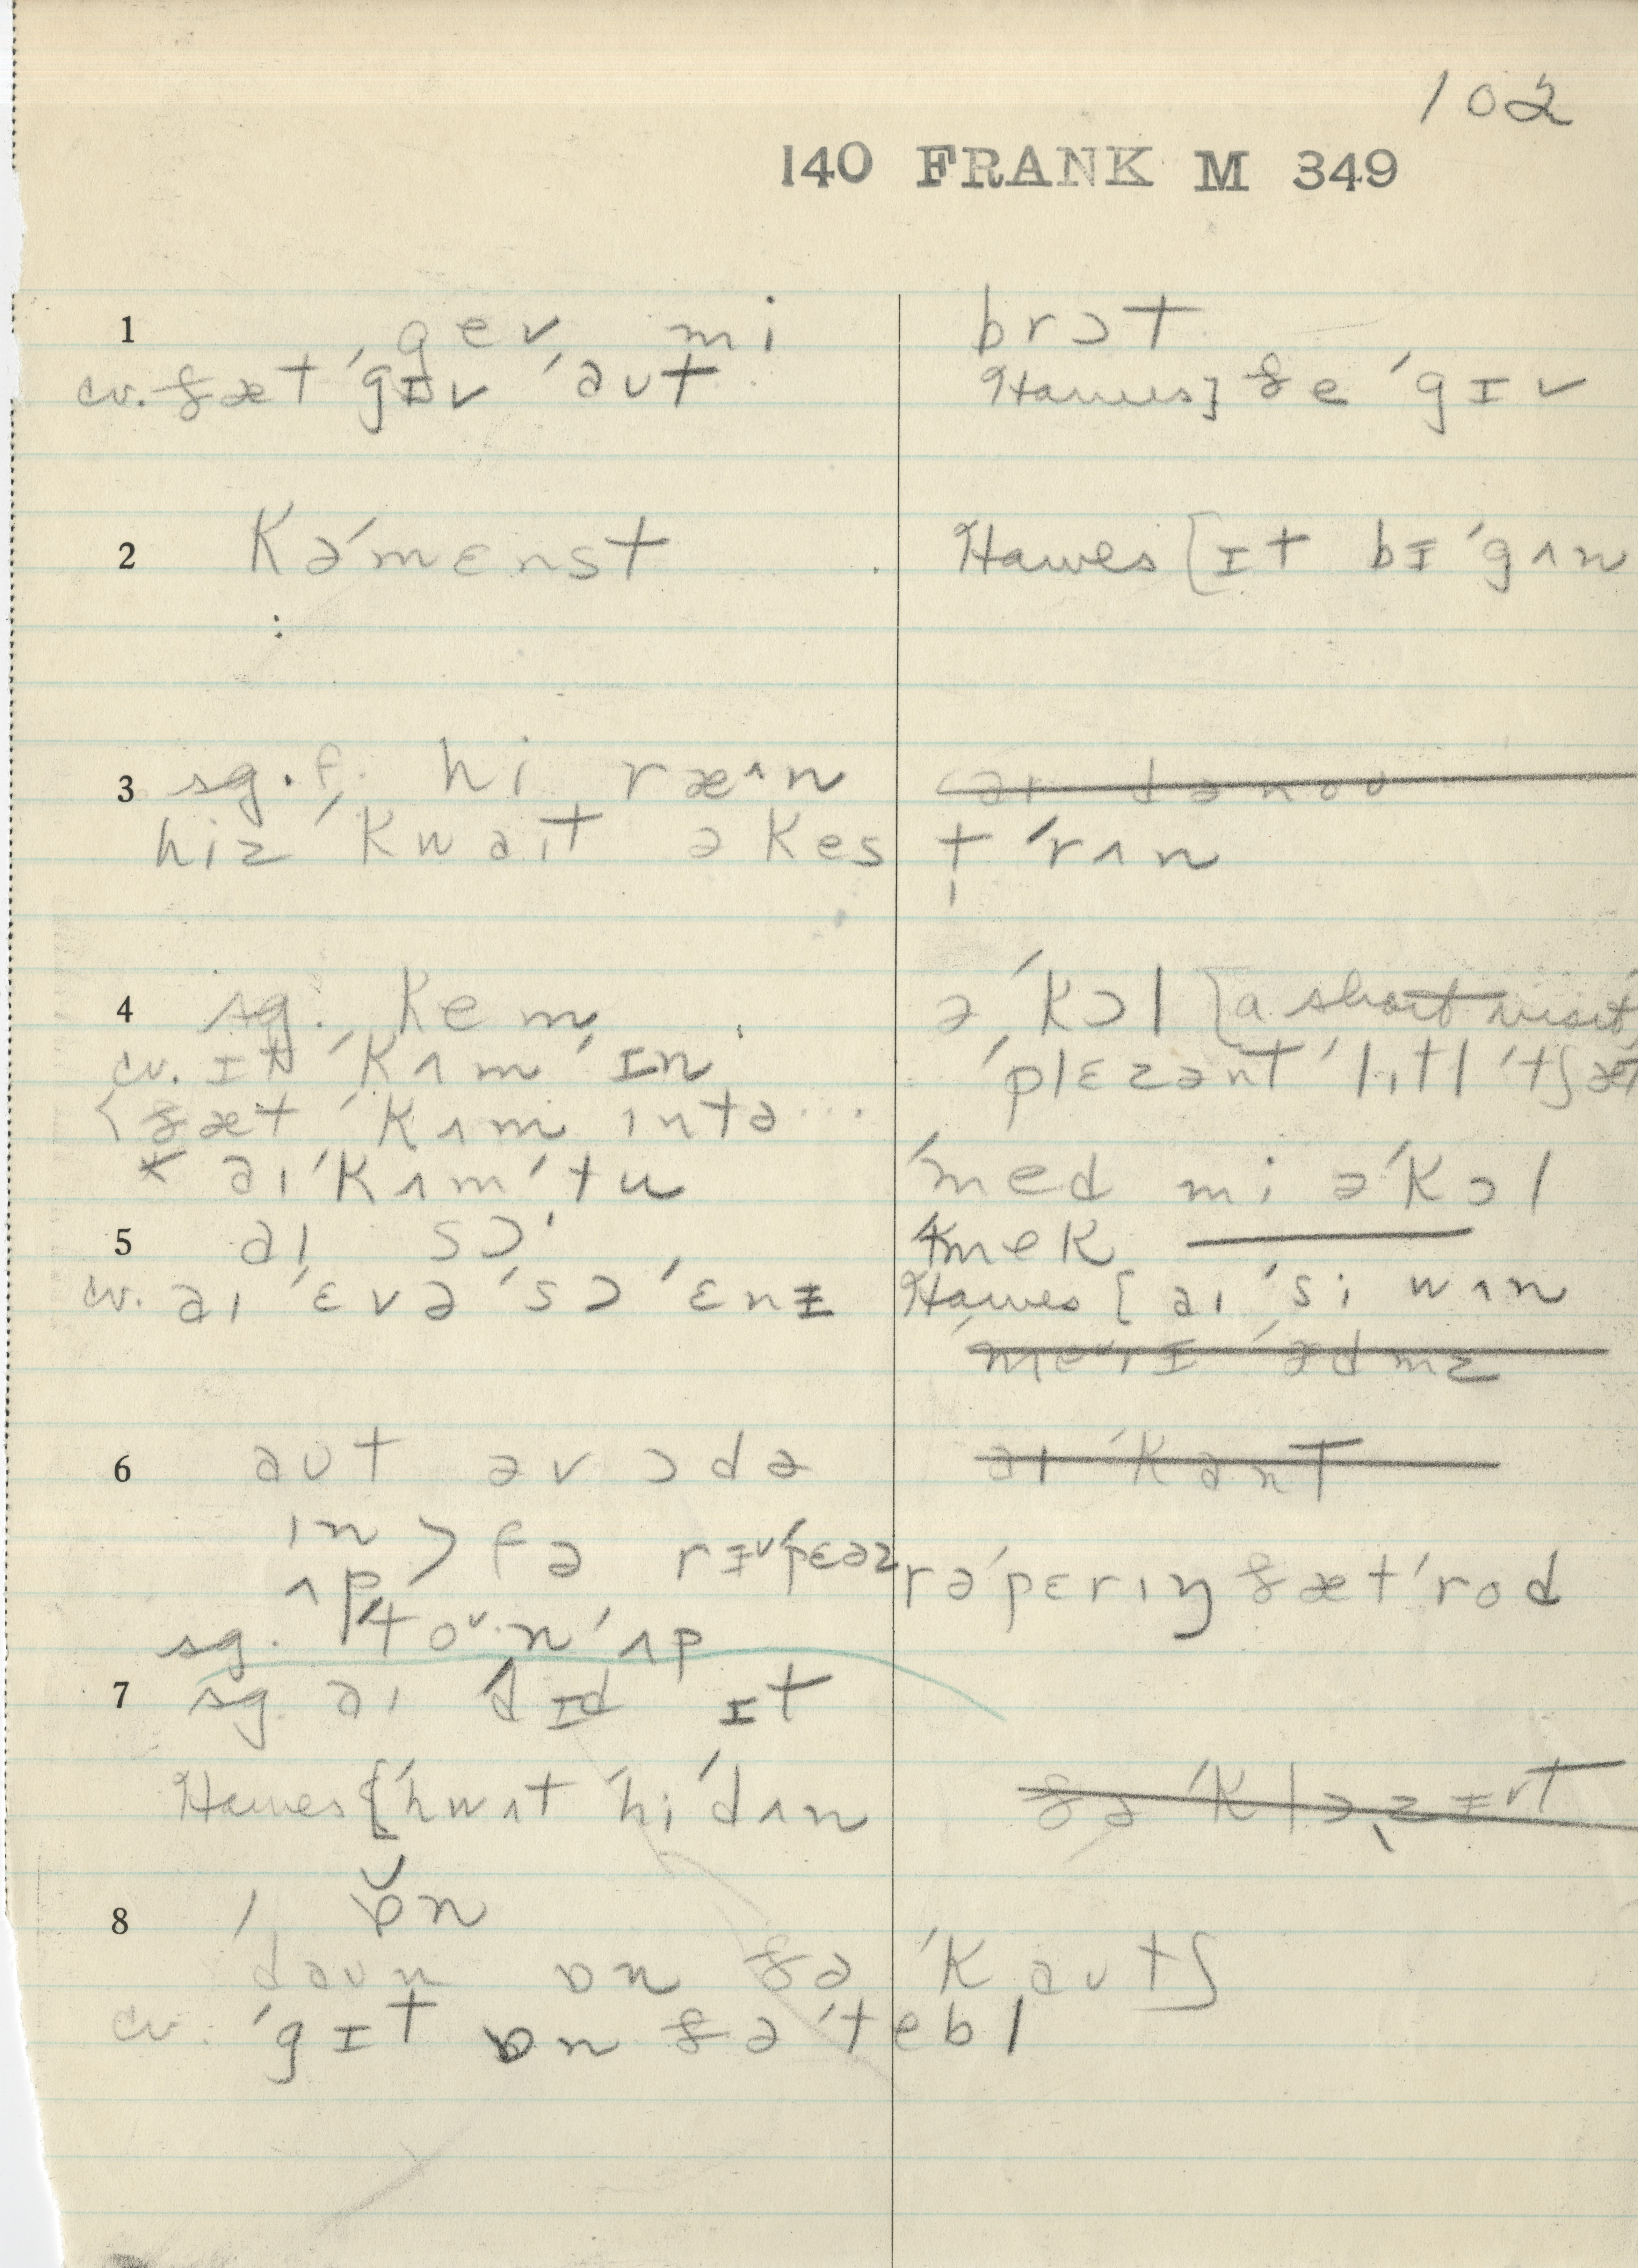 102
140 FRANK M 349
1 gev mi brɔt
cv. ðæt ˈgɪv ˈaʊt Hawes] ðe ˈgɪv
2 kəˈmɛnst Hawes [ɪt bɪˈgʌn
3 sg. f. hi ræ^n aɪ dənoʊ
hiz ˈkwaɪt ə kes t ˈrʌn
4 sg. kem ə ˈkɔl [a short visit
cv. ɪt ˈkʌm ˈɪn ˈplɛzənt ˈlɪtl ˈtʃæt
ðæt ˈkʌm ɪntə...
* aɪ ˈkʌm ˈtu ˈmed mi ə ˈkɔl
5 aɪ sɔ mek
cv. aɪ ˈɛvə ˈsɔ ˈɛnɪ Hawes [aɪ ˈsi wʌn
ædmz
6 aʊt əv ɔdə aɪ ˈkant
ɪn > f ə rɪˈpɛəz rəˈpɛrɪŋ ðæt ˈrod
ʌp
sg. ˈtoʊn ˈʌp
7 sg aɪ dɪd ɪt
Hawes [ˈhwʌt ˈhi ˈdʌn
8 ɒn
daʊn ɒn ðə ˈkaʊtʃ
cv. ˈgɪt ɒn ðə ˈtebl